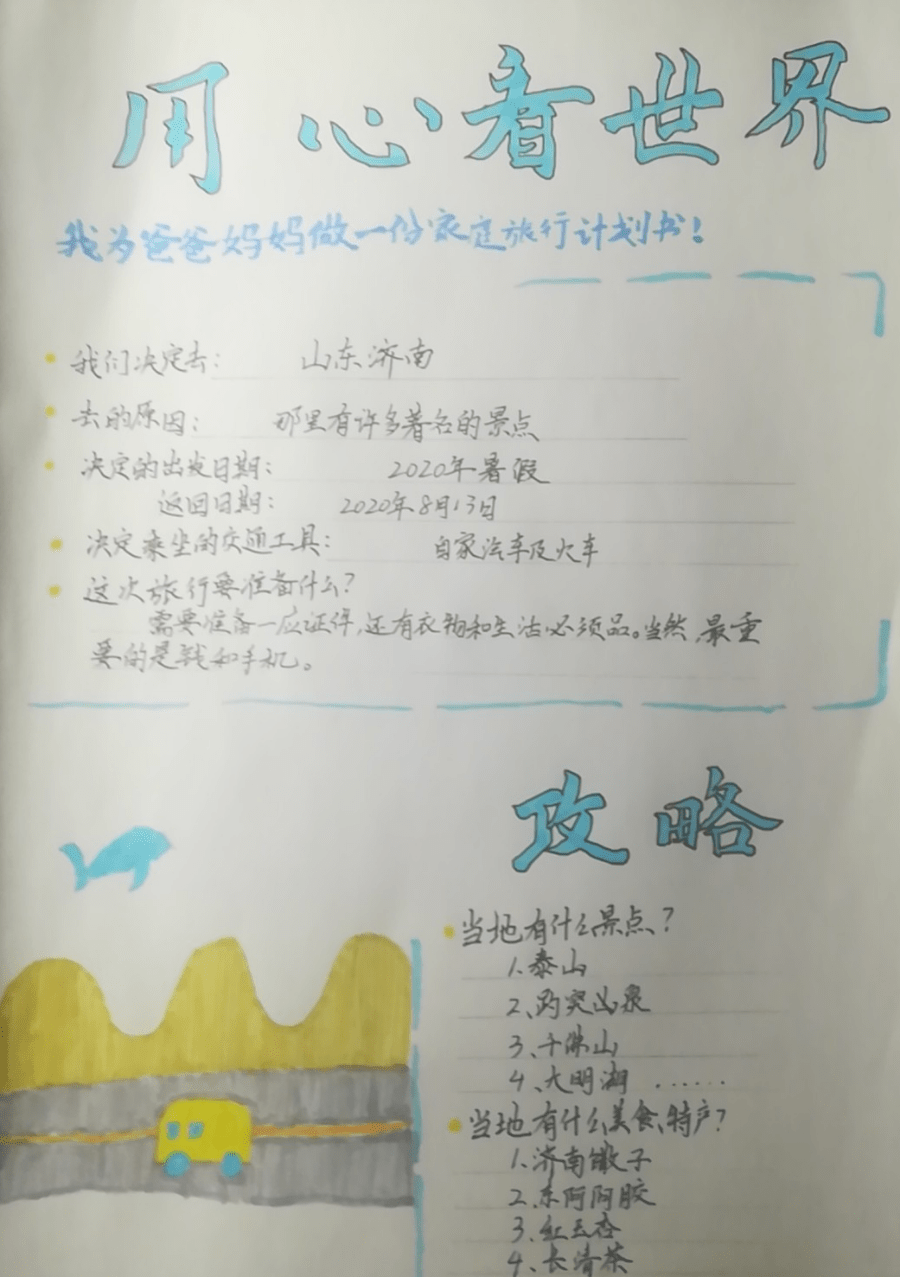 用心看世界
我为爸爸妈妈做一份家庭旅行计划书!
我们决定去: 山东济南
去的原因: 那里有许多著名的景点
决定的出发日期: 2020年暑假
返回日期: 2020年8月13日
决定乘坐的交通工具: 自家汽车及火车
这次旅行要准备什么?
需要准备一应证件,还有衣物和生活必须品。当然,最重
要的是钱和手机。
攻略
当地有什么景点?
1.泰山
2、趵突山泉
3、千佛山
4、大明湖 ......
当地有什么美食、特产?
1.济南馓子
2.东阿阿胶
3.红玉杏
4、长清茶